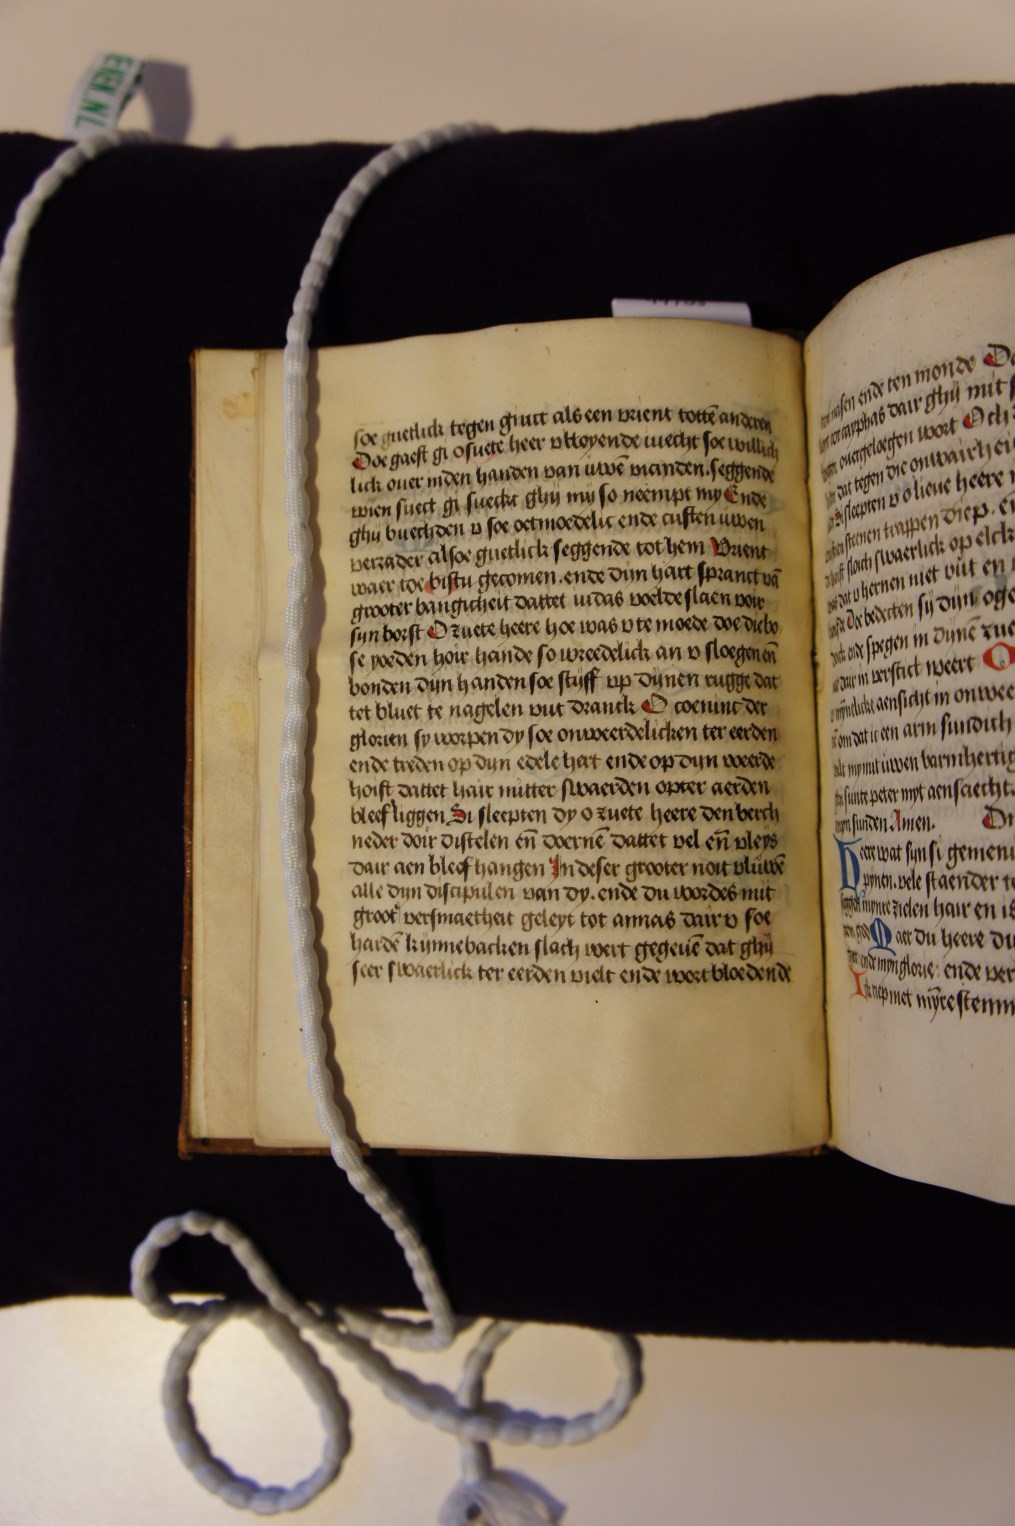 EKER.NL
soe guetlick tegen gruet als een vrient totte anderen
Doe gaest gi o suete heer vltoyende wecht soe willich
lick ouer in den handen van uwē vianden. seggende
wien suect gi suecke ghij my so neempt my Ende
ghij buechden v soe oetmoedelic ende custen uwen
verrader alsoe guetlick seggende tot hem Vrient
waer toe bistu gecomen. ende dijn hart spranct vā
grooter bangicheit dattet iudas voelde slaen voir
sijn borst O zuete heere hoe was v te moede doe die bo
se yoeden hoir hande so wreedelick an v sloegen eñ
bonden dijn handen soe stijff vp dijnen rugge dat
tet bluet te nagelen vut dranck O coeninc der
glorien sy worpen dy soe onweerdelicken ter eerden
ende treden op dijn edele hart ende op dijn weerde
hoift dattet hair mitter swaerden opter aerden
bleef liggen Si sleepten dy o zuete heere den berch
neder doir distelen eñ doernē dattet vel eñ vleys
dair aen bleef hangen In deser grooter noit vluwē
alle dijn discipulen van dy. ende du wordes mit
groot versmaetheit geleyt tot annas dair v soe
hardē kijnnebacken slach wert gegeuē dat ghij
seer swaerlick ter eerden vielt ende wort bloedende
nasen ende ten monde
cayphas dair ghij mit
ouergeloegen wort Och
dat tegen die onwairheit
sleepten v o lieue heere
steenen trappen diep.
slach swaerlick op elck
dat v hernen niet vut en
Doe bedecten sij dijn
ende spegen in dijnē
dair in verstict weert O
aensicht in onwee
om dat ic een arm sundich
my mit uwen barmhertig
sunte peter myt aensiecht
mijn sunden Amen.
Heere wat sijn si
pijnen. vele staender
mijnre zielen hair en is
Maer du heere du
ende mijn glorie: ende ver
Ic riep met mijre stemm